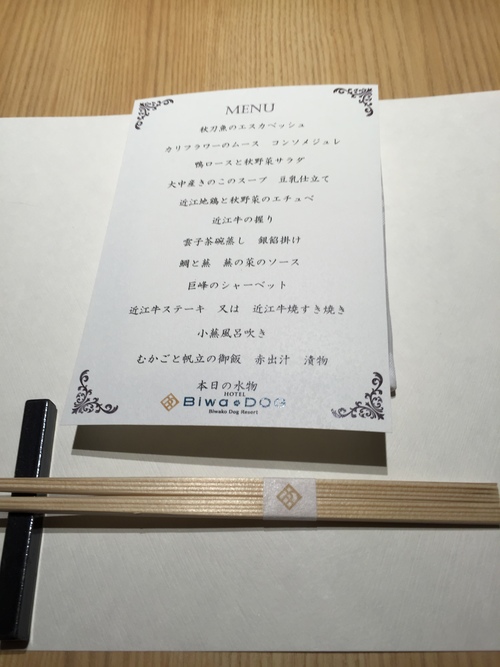 MENU
秋刀魚のエスカベッシュ
カリフラワーのムース　コンソメジュレ
鴨ロースと秋野菜サラダ
大中産きのこのスープ　豆乳仕立て
近江地鶏と秋野菜のエチュベ
近江牛の握り
雲子茶碗蒸し　銀餡掛け
鯛と蕪　蕪の菜のソース
巨峰のシャーベット
近江牛ステーキ　又は　近江牛焼すき焼き
小蕪風呂吹き
むかごと帆立の御飯　赤出汁　漬物
本日の水物
HOTEL
Biwa DOG
Biwako Dog Resort